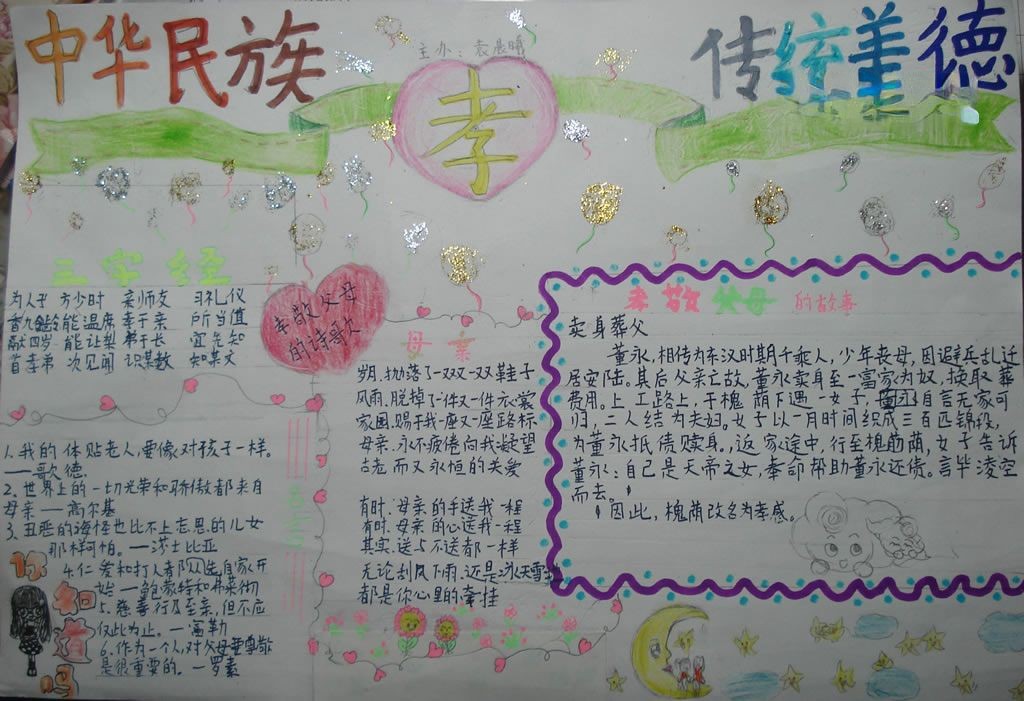 中华民族
主办：袁晨曦
孝
传统美德
三字经
为人子 方少时 亲师友 习礼仪
香九龄 能温席 孝于亲 所当值
融四岁 能让梨 弟于长 宜先知
首孝弟 次见闻 识某数 知某文
孝敬父母
的诗歌
1.我的体贴老人,要像对孩子一样。
——歌德
2.世界上的一切光荣和骄傲都来自
母亲——高尔基
3.丑恶的海怪也比不上忘恩的儿女
那样可怕。——莎士比亚
4.仁爱和打人者都从选自家开
始——鲍蒙特和弗莱彻
5.慈善行及至亲,但不应
仅此为止。——富勒
6.作为一个人对父母要尊敬
是很重要的。—罗素
你
知
道
吗
母亲
岁月.抛落了一双又一双鞋子
风雨.脱掉了一件又一件衣裳
家园.赐于我一座又一座路标
母亲.永不疲倦向我凝望
古老而又永恒的关爱
有时.母亲的手送我一程
有时.母亲的心送我一程
其实.送与不送都一样
无论刮风下雨.还是冰天雪地
都是你心里的牵挂
孝敬父母的故事
卖身葬父
董永,相传为东汉时期千乘人,少年丧母,因避兵乱迁
居安陆。其后父亲亡故,董永卖身至一富家为奴,换取葬
费用。上工路上,于槐荫下遇一女子,董永自言无家可
归,二人结为夫妇。女子以一月时间织成三百匹锦缎,
为董永抵债赎身。返家途中,行至槐荫,女子告诉
董永：自己是天帝之女,奉命帮助董永还债。言毕凌空
而去。
因此,槐荫改名为孝感。